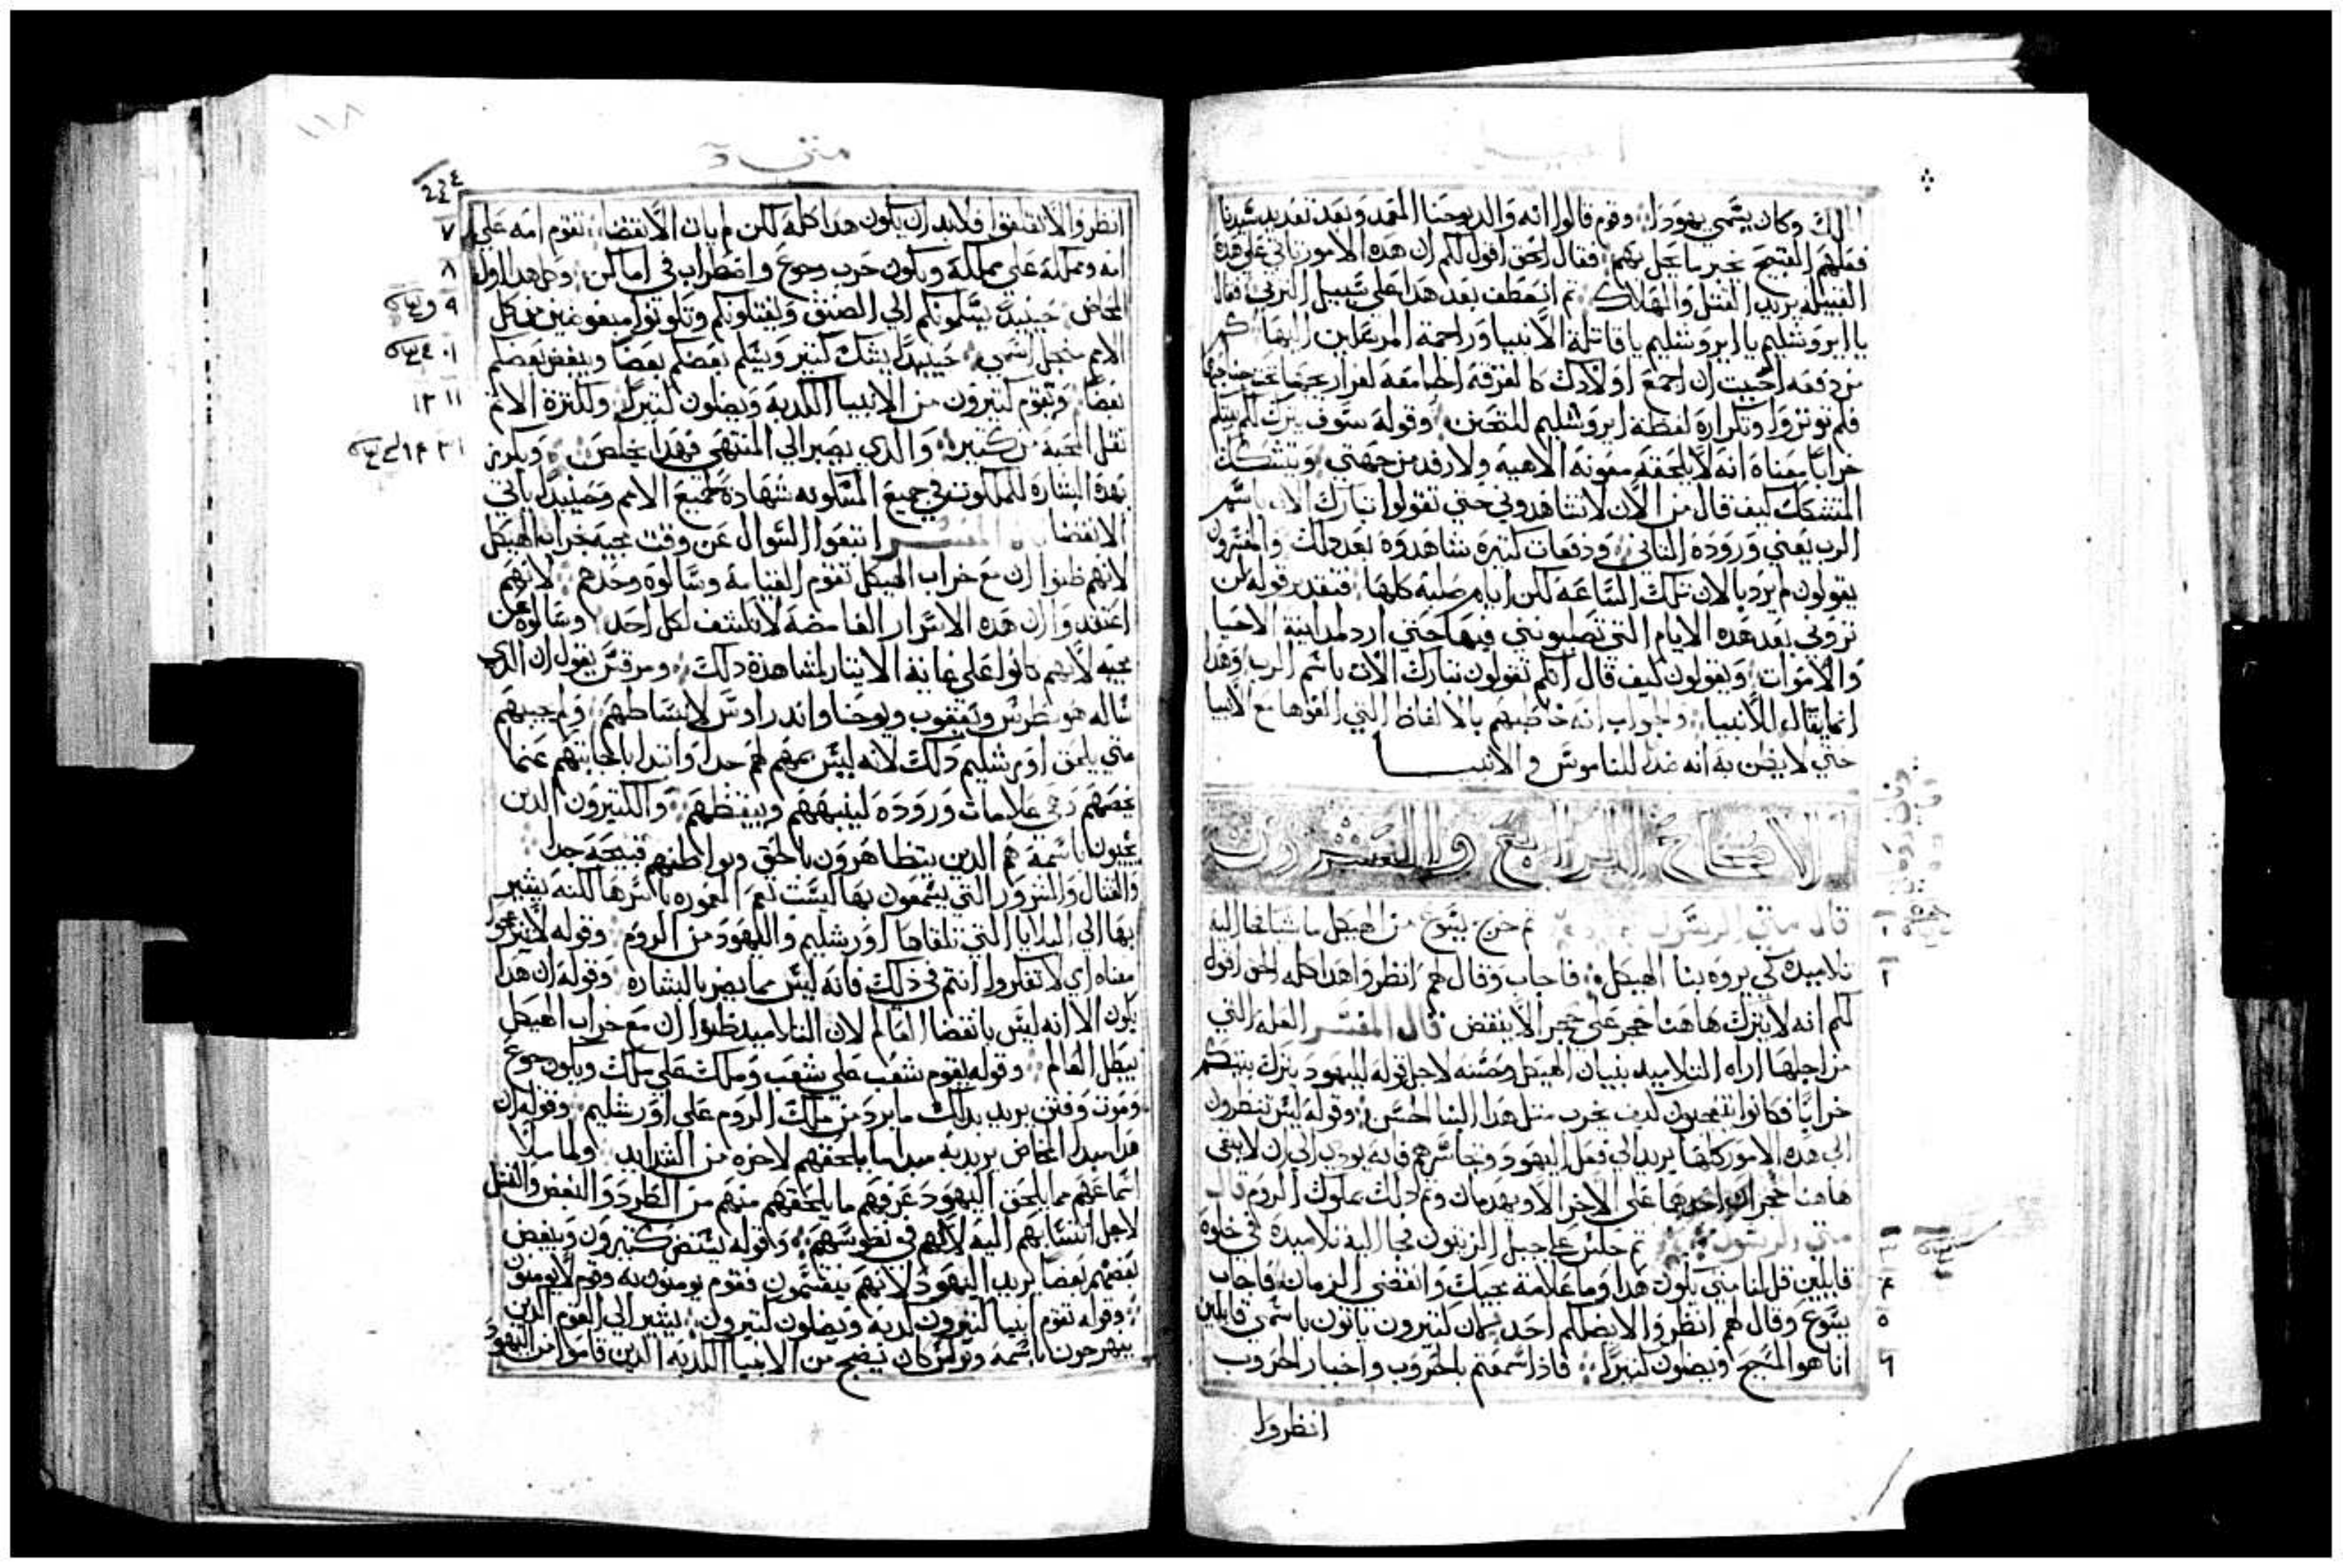 الك وكان يسمي يهودا وقوم قالوا انه والد يوحنا المعمد وبعد تعديد شدة
فعلهم القبيح يخبر ما يحل بهم فقال الحق اقول لكم ان هذه الامور تاتي علي هذه
القبيلة يريد القتل والهلاك ثم انعطف بعد هذا علي سبيل التربي فقال
يا ايروشليم يا ايروشليم يا قاتلة الانبيا وراجمة المرسلين اليها كم
من دفعه احببت ان اجمع اولادك كالفرقة الجامعة لفراريجها تحت جناحيها
فلم توتروا وتكراره لفظة ايروشليم للتحنن وقوله سوف يترك لكم بيتكم
خرابا معناه انه لا يلحقه معونه الاهيه ولا رفد من جهتي ويتشكك
المتشكك كيف قال من الان لا تشاهدوني حتي تقولوا تبارك الات باسم
الرب يعني وروده التاني ودفعات كتيرة شاهدوه بعد دلك والمفسرون
يقولون لم يرد بالان تلك الساعة لكن ايام صلبه كلها فتقدير قوله لن
تروني بعد هذه الايام التي تصلبونني فيها حتي ارد لمداينة الاحيا
والاموات ويقولون كيف قال انكم تقولون تبارك الات باسم الرب وهدا
انما يقال للانبيا والجواب انه خاطبهم بالالفاظ التي الفوها مع الانبيا
حتي لا يظن به انه ضدا للناموس والانبيا
الاصحاح الرابع والعشرون
قال متي الرسول ثم خرج يسوع من الهيكل ماشيا فجا اليه
تلاميده كي يروه بنا الهيكل فاجاب وقال لهم انظروا هدا كله الحق اقول
لكم انه لا يترك هاهنا حجر علي حجر الا ينقض قال المفسر العله التي
من اجلها اراه التلاميد بنيان الهيكل وحسنه لاجل قوله لليهود يترك بيتكم
خرابا فكانوا يتعجبون كيف يخرب متل هدا البنا الحسن وقوله ليس تنظرون
الي هده الامور كلها يريد الي فعل اليهود وتجاسرهم فانه يودي الي ان لا يبقي
هاهنا حجران احدهما علي الاخر الا ويهدمان وتم دلك بملوك الروم قال
متي الرسول ثم جلس علي جبل الزيتون فجا اليه تلاميده في خلوه
قايلين قل لنا متي يكون هدا وما علامة مجيك وانقضي الزمان فاجاب
يسوع وقال لهم انظروا لا يضلكم احد فان كتيرون ياتون باسمي قايلين
انا هو المسيح ويضلون كتيرا فادا سمعتم بالحروب واخبار الحروب
انظروا
١
٢
٣
٤
٥
٦
متي
١١٨
انظروا لا تقلقوا فلابد ان يكون هدا كله لكن لم يات الانقضا تقوم امه علي
امه ومملكة علي مملكة ويكون حرب وجوع واضطراب في اماكن وكل هدا اول
المخاض حينيد يسلمونكم الي الضيق ويقتلونكم وتكونوا مبغوضين من كل
الامم من اجل اسمي حينيد يشك كتير ويسلم بعضكم بعضا ويبغض بعضكم
بعضا وتقوم كتيرون من الانبيا الكدبه ويضلون كتيرا ولكترة الاثم
تقل المحبه من كتير والدي يصبر الي المنتهي فهدا يخلص ويكرز
بهده البشاره للملكوت في جميع المسكونه شهادة لجميع الامم وحينيد ياتي
الانقضا المفسر اتبعوا السوال عن وقت مجيه خراب الهيكل
لانهم ظنوا ان مع خراب الهيكل تقوم القيامة وسالوه وحدهم لانهم
اعتقدوا ان هده الاسرار الغامضة لا تكشف لكل احد وسالوه عن
مجيه لانهم كانوا علي غاية الايتار لمشاهدة دلك ومرقس يقول ان الدي
ساله هو بطرس ويعقوب ويوحنا واندراوس لانبساطهم ولم يجيبهم
متي يلحق اورشليم دلك لانه ليس بمهم لهم جدا وابتدا باجابتهم عنما
يخصهم وهي علامات وروده لينبههم ويبقظهم والكتيرون الدين
يجيون باسمه هم الدين يتظاهرون بالحق وبواطنهم قبيحه جدا
والقتال والشرور التي يسمعون بها ليست تعم المعموره باسرها لكنه يشير
بها الي البلايا التي تلقاها اورشليم واليهود من الروم وقوله لا تنزعجوا
معناه اي لا تفكروا انتم في دلك فانه ليس مما يضر بالبشاره وقوله ان هدا
يكون الا انه ليس بانقضا العالم لان التلاميد ظنوا ان مع خراب الهيكل
يبطل العالم وقوله يقوم شعب علي شعب وملك علي ملك ويكون جوع
وموت وفتن يريد بدلك ما يرد من ملك الروم علي اورشليم وقوله ان
هدا مبدا المخاض يريد به مبدا ما يلحقهم لاخره من الشدايد ولما ملا
اسماعهم مما يلحق اليهود عرفهم ما يلحقهم منهم من الطرد والبغض والقتل
لاجل انتسابهم اليه لانهم في نفوسهم وقوله يبغض كتيرون ويبغض
بعضهم بعضا يريد اليهود لانهم ينقسمون فقوم يومنون به وقوم لا يومنون
وقوله تقوم انبيا كتيرون كدبه ويضلون كتيرون يشير الي القوم الدين
يبهرجون باسمه وبولس كان يضج من الانبيا الكدبه الدين قاموا من اليهود
٧
٨
٩
١٠
١١ ١٢